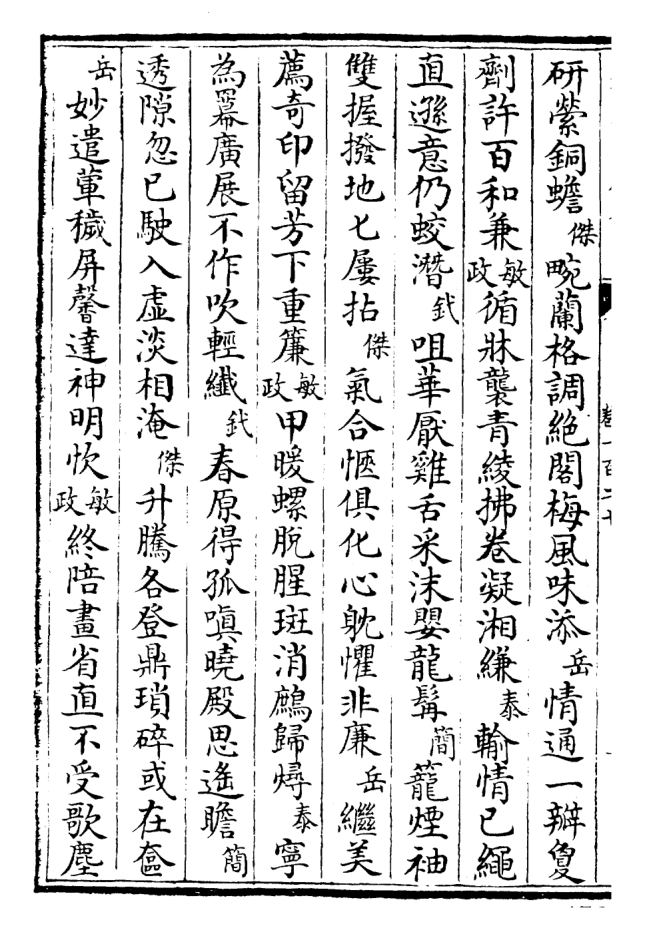 研縈銅蟾傑畹蘭格調絕閣梅風味添岳情通一辦夐
劑許百和兼敏政循牀襲青綾拂卷凝湘縑泰輸情已繩
直遜意仍蛟潛鉽咀華厭雞舌采沫嬰龍髯簡籠煙袖
雙握撥地匕屢拈傑氣合愜俱化心躭懼非廉岳繼美
薦奇印留芳下重簾敏政甲暖螺脫腥斑消鷓歸燖泰寧
為冪廣展不作吹輕纖鉽春原得孤嗔曉殿思遙瞻簡
透隙忽已駛入虛淡相淹傑升騰各登鼎瑣碎或在奩
岳妙遣葷穢屏馨達神明忺敏政終陪畫省直不受歌塵
卷一百二十